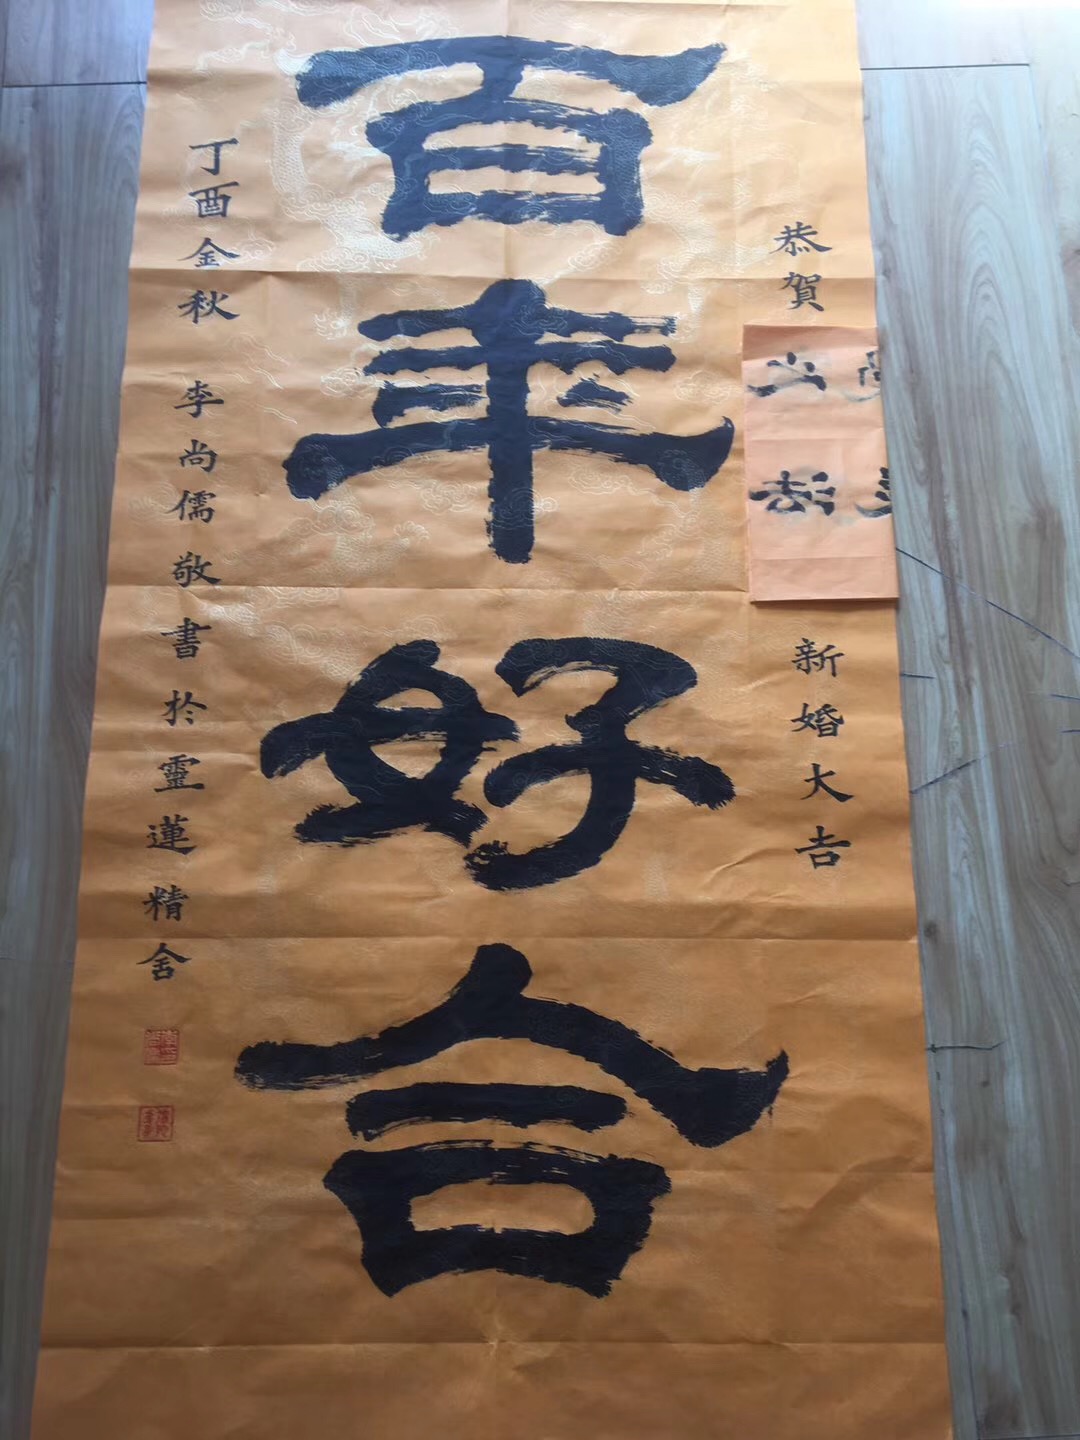 恭賀
新婚大吉
百年好合
丁酉金秋 李尚儒敬書於靈蓮精舍